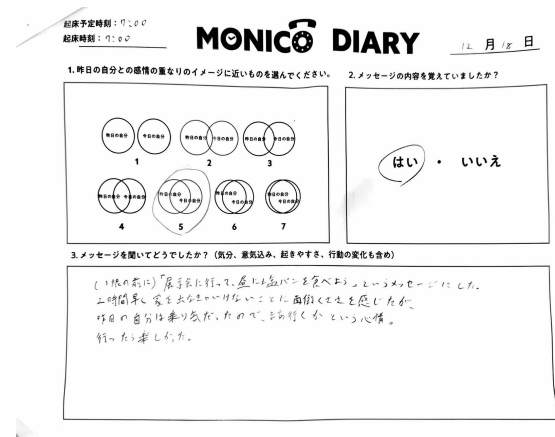 起床予定時刻:7:00
起床時刻:7:00
MONICO DIARY
12月18日
1.昨日の自分との感情の重なりのイメージに近いものを選んでください。
昨日の自分 今日の自分
1
昨日の自分 今日の自分
2
昨日の自分 今日の自分
3
昨日の自分 今日の自分
4
昨日の自分 今日の自分
5
昨日の自分 今日の自分
6
昨日の自分 今日の自分
7
2.メッセージの内容を覚えていましたか?
はい ・ いいえ
3.メッセージを聞いてどうでしたか?(気分、意気込み、起きやすさ、行動の変化も含め)
(眠る前に)「展示会に行って、昼に塩パンを食べよう」というメッセージにした。
2時間早く家を出なきゃいけないことに面倒くささを感じたが、
昨日の自分は乗り気だったので、行くかという心情。
行ったら楽しかった。